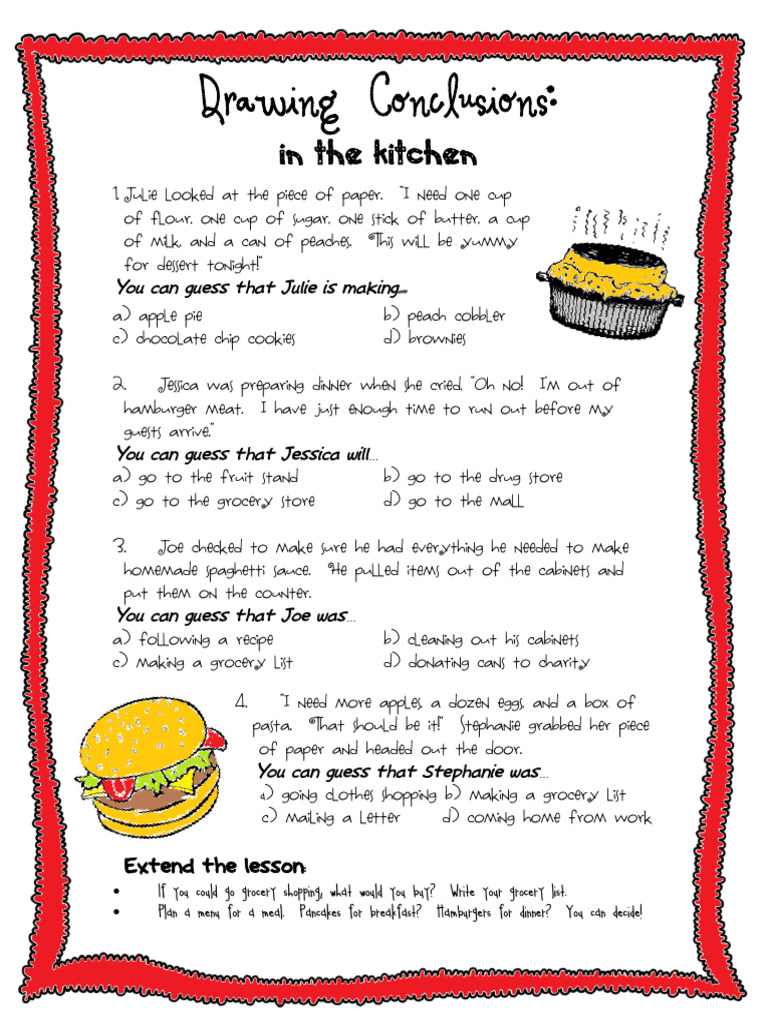 Drawing Conclusions:
in the kitchen
1. Julie looked at the piece of paper. "I need one cup
of flour, one cup of sugar, one stick of butter, a cup
of milk, and a can of peaches. This will be yummy
for dessert tonight!"
You can guess that Julie is making...
a) apple pie b) peach cobbler
c) chocolate chip cookies d) brownies
2. Jessica was preparing dinner when she cried, "Oh no! I'm out of
hamburger meat. I have just enough time to run out before my
guests arrive."
You can guess that Jessica will...
a) go to the fruit stand b) go to the drug store
c) go to the grocery store d) go to the mall
3. Joe checked to make sure he had everything he needed to make
homemade spaghetti sauce. He pulled items out of the cabinets and
put them on the counter.
You can guess that Joe was...
a) following a recipe b) cleaning out his cabinets
c) making a grocery list d) donating cans to charity
4. "I need more apples, a dozen eggs, and a box of
pasta. That should be it!" Stephanie grabbed her piece
of paper and headed out the door.
You can guess that Stephanie was...
a) going clothes shopping b) making a grocery list
c) mailing a letter d) coming home from work
Extend the lesson:
• If you could go grocery shopping, what would you buy? Write your grocery list.
• Plan a menu for a meal. Pancakes for breakfast? Hamburgers for dinner? You can decide!